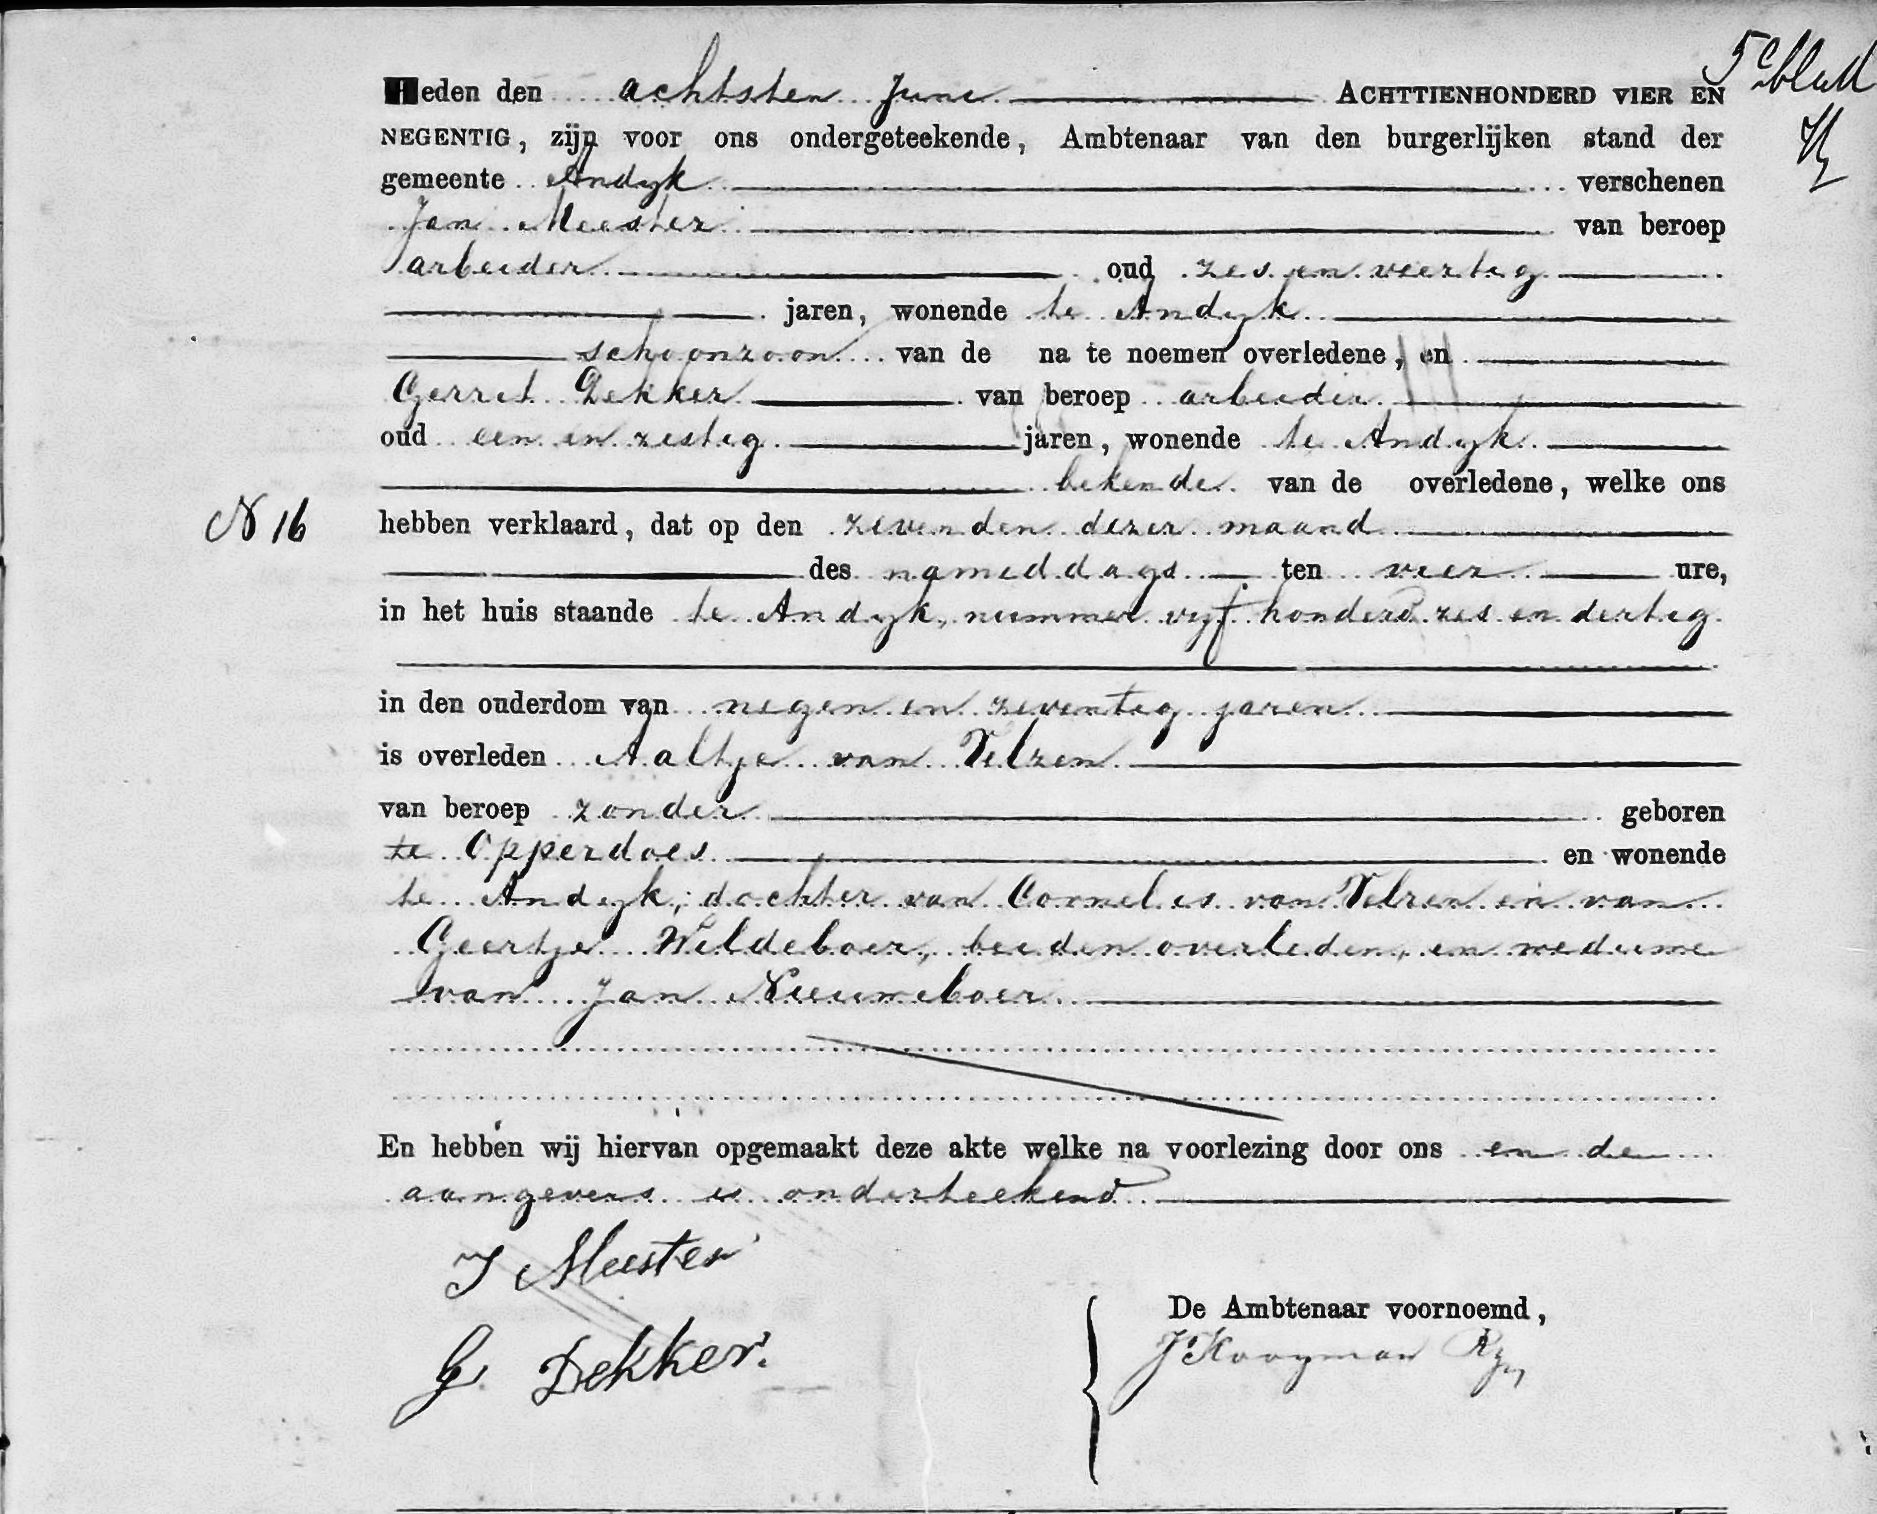 5e blad
Heden den achtsten Juni ACHTTIENHONDERD VIER EN
NEGENTIG, zijn voor ons ondergeteekende, Ambtenaar van den burgerlijken stand der
gemeente Andyk verschenen
Jan Meester van beroep
arbeider oud zes en veertig
jaren, wonende te Andyk
schoonzoon van de na te noemen overledene, en
Gerrit Dekker van beroep arbeider
oud een en zestig jaren, wonende te Andyk
bekende van de overledene, welke ons
N 16
hebben verklaard, dat op den zevenden dezer maand
des namiddags ten vier ure,
in het huis staande te Andyk, nummer vyf honderd zes en dertig
in den ouderdom van negen en zeventig jaren
is overleden Aaltje van Velzen
van beroep zonder geboren
te Opperdoes en wonende
te Andyk, dochter van Cornelis van Velzen en van
Geertje Wildeboer, beiden overleden, en weduwe
van Jan Nieuweboer
En hebben wij hiervan opgemaakt deze akte welke na voorlezing door ons en de
aangevers is onderteekend
J Meester
De Ambtenaar voornoemd,
G Dekker.
J Kooyman Rzn